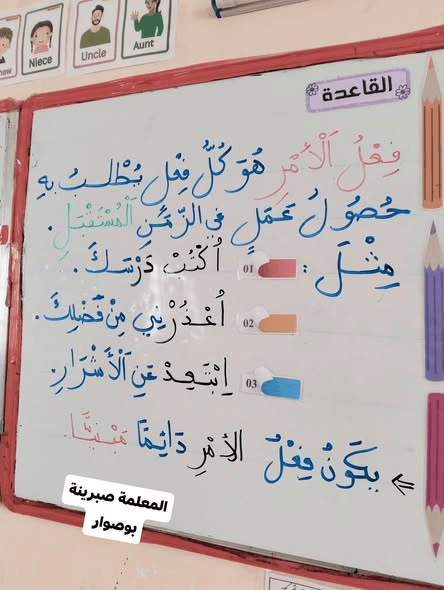 Niece
Uncle
Aunt
القاعدة
فِعْلُ الْأَمْرِ هُوَ كُلُّ فِعْلٍ يُطْلَبُ بِهِ
حُصُولُ عَمَلٍ فِي الزَّمَنِ الْمُسْتَقْبَلِ.
مِثْلَ: 01 أُكْتُبْ دَرْسَكَ.
02 أُعْذُرْنِي مِنْ فَضْلِكَ.
03 اِبْتَعِدْ عَنِ الْأَشْرَارِ.
⇐ يَكُونُ فِعْلُ الأمْرِ دَائِمًا مَبْنِيًّا.
المعلمة صبرينة
بوصوار